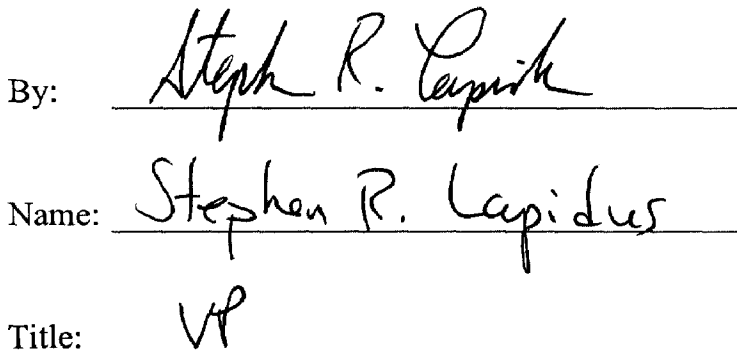 By: Stephen R. Lapidus
Name: Stephen R. Lapidus
Title: VP